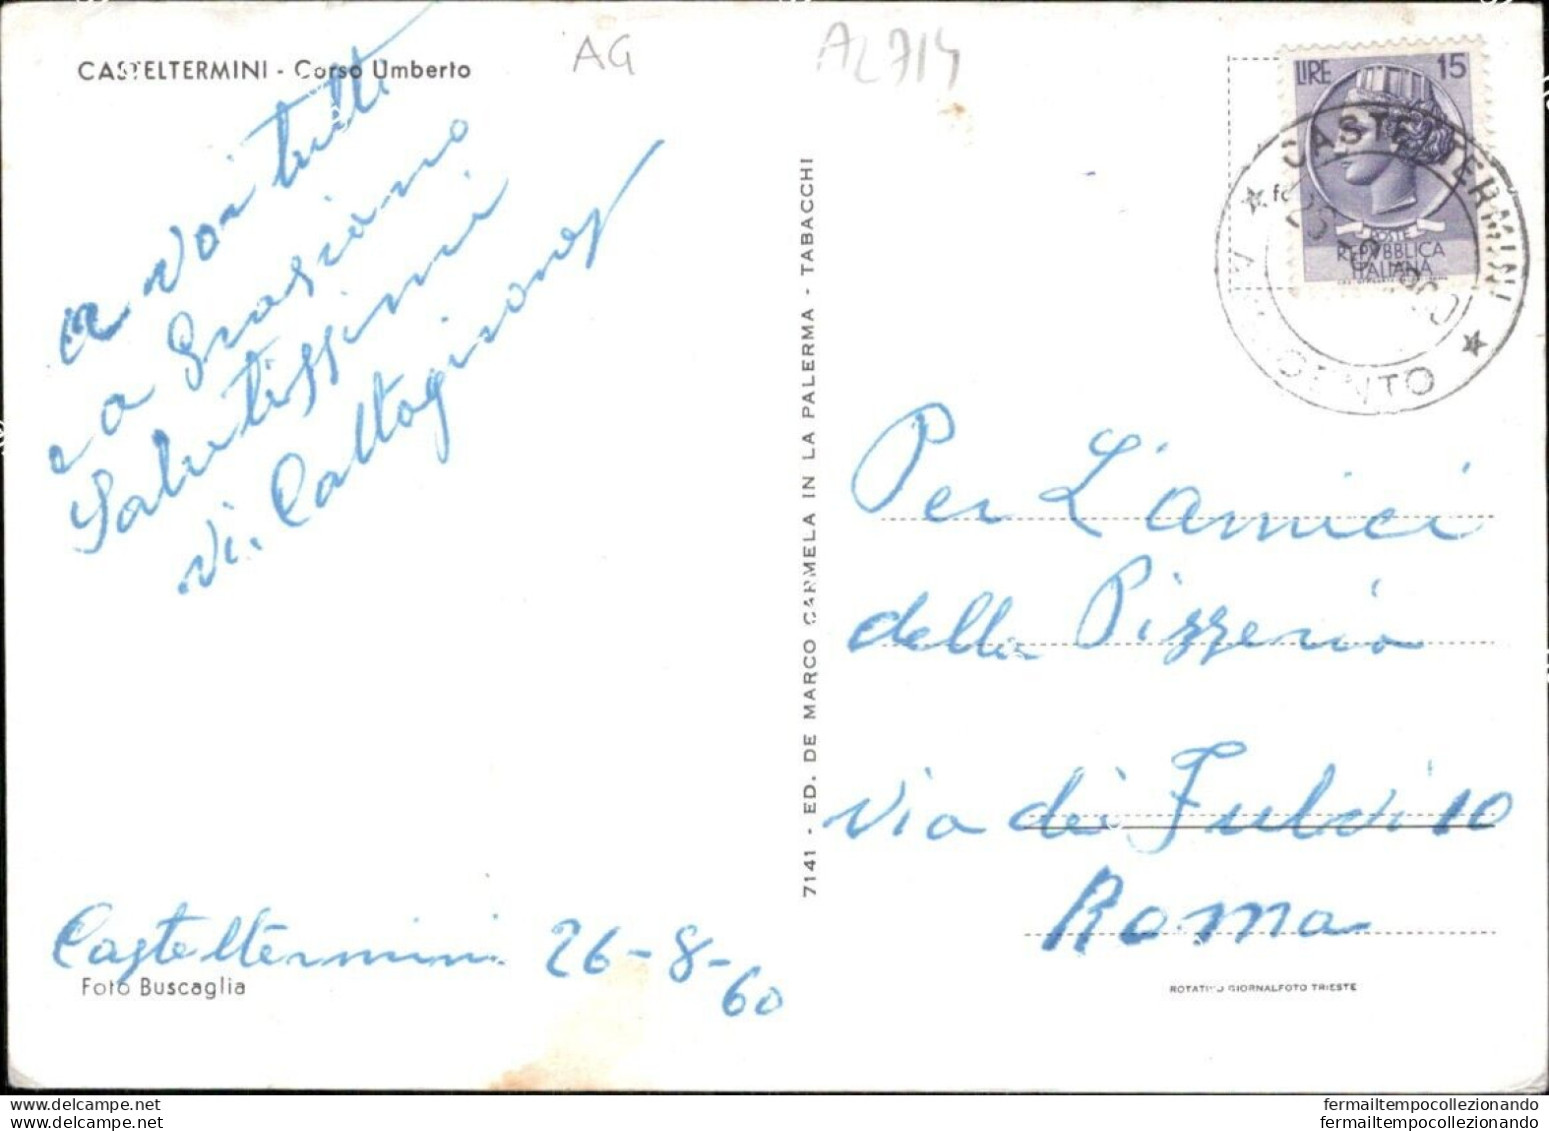 CASTELTERMINI - Corso Umberto
AG
AL714
a voi tutti
e a Graziano
Salutissimi
Vi. Caltagirones
Casteltermini 26-8-60
Foto Buscaglia
7141 - ED. DE MARCO CARMELA IN LA PALERMA - TABACCHI
LIRE 15
POSTE
REPVBBLICA
ITALIANA
CASTELTERMINI
Per L'amici
della Pizzeria
via dei Fulvi 10
Roma
ROTATIVO GIORNALFOTO TRIESTE
www.delcampe.net
www.delcampe.net
fermailtempocollezionando
fermailtempocollezionando